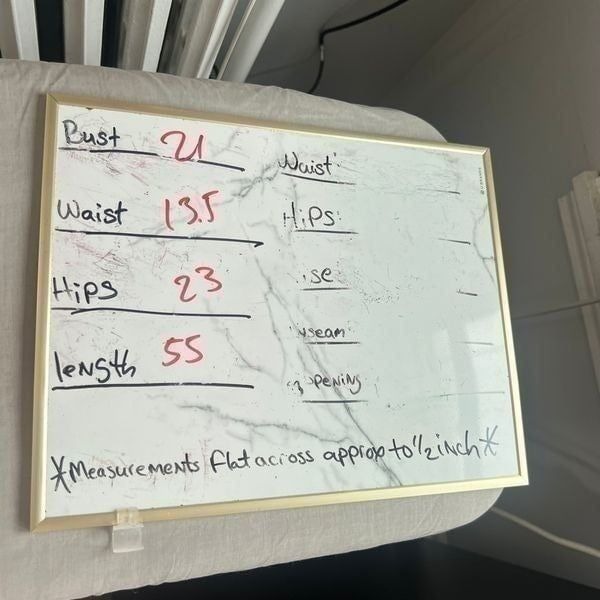 Bust 21
Waist 13.5
Hips 23
length 55
Waist
Hips
nseam
*Measurements flat across approx to 1/2 inch*